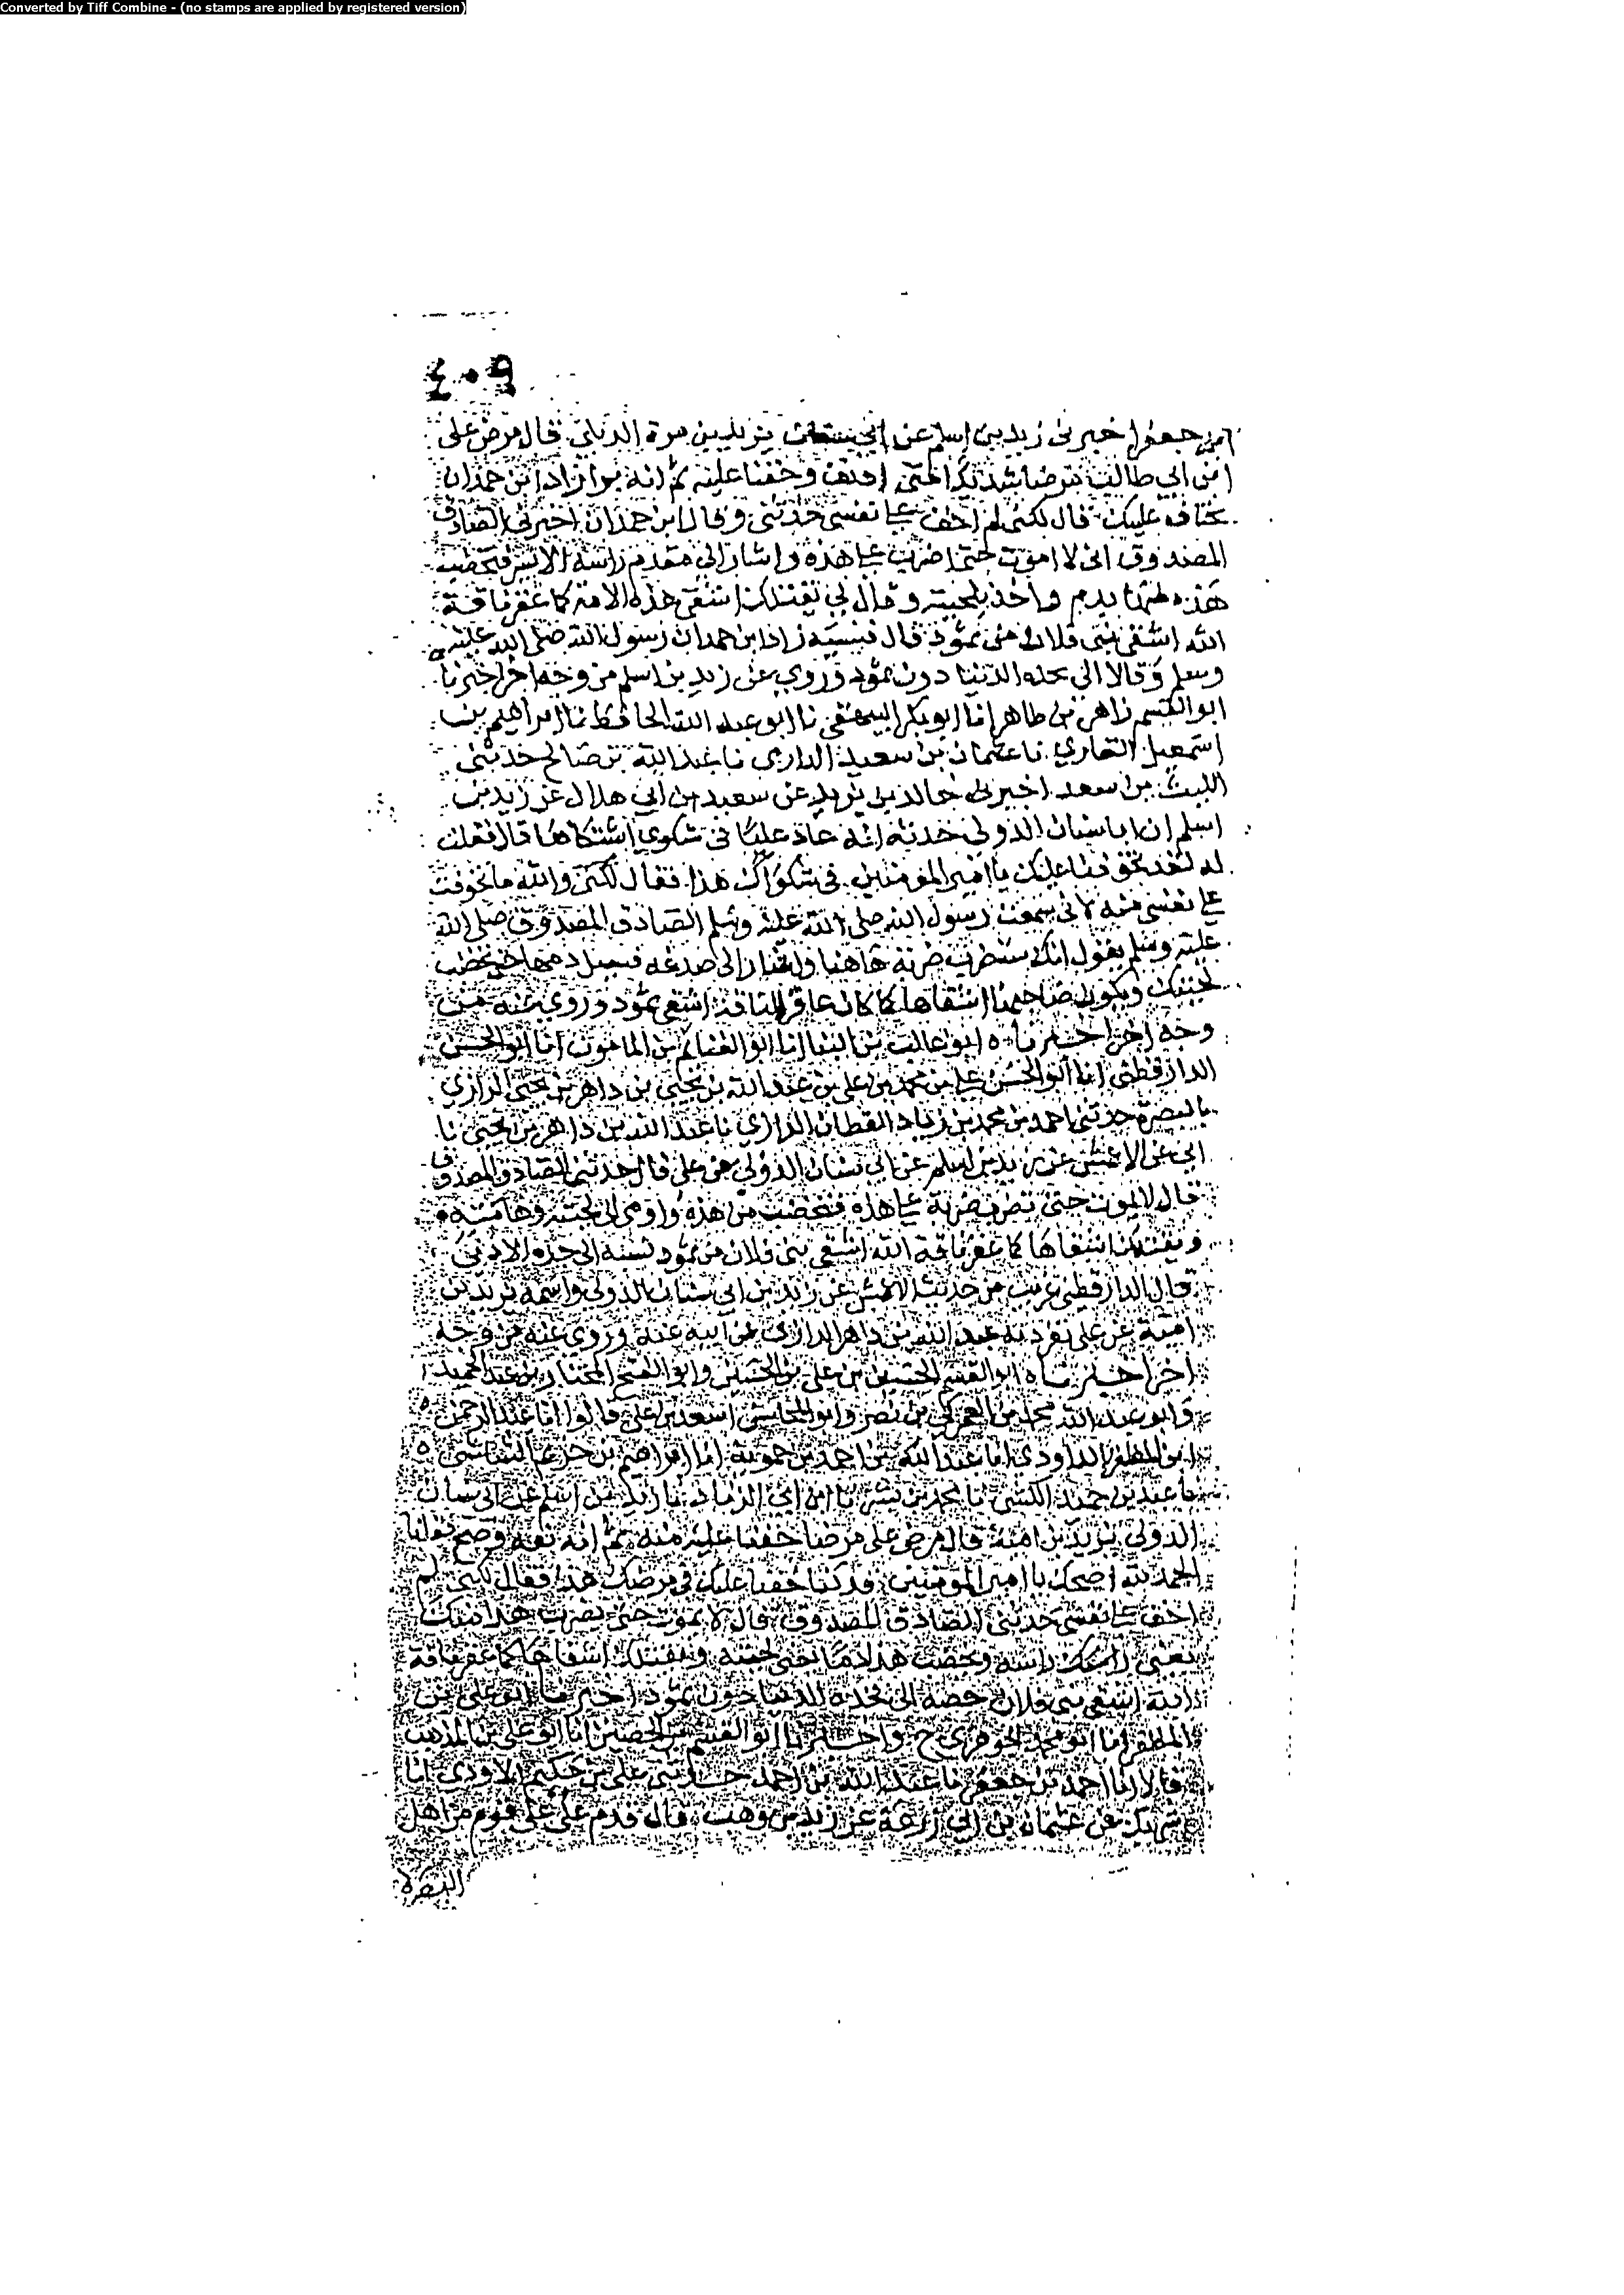 Converted by Tiff Combine - (no stamps are applied by registered version)
٤٠٩
ابن جعفر اخبرني زيد بن اسلم عن ابي سنان يزيد بن مرة الديلي قال مرض علي
ابن ابي طالب مرضا شديدا حتى ادنف وخفنا عليه ثم انه برا زاد ابن حمدان
نخاف عليك قال لكني لم اخف على نفسي حدثني وقال ابن حمدان اخبرني الصادق
المصدوق اني لا اموت حتى اضرب على هذه واشار الى مقدم راسه الايسر فتخضب
هذه منها بدم واخذ بلحيته وقال لي يقتلك اشقى هذه الامة كما عقر ناقة
الله اشقى بني فلان من ثمود قال فنسبه زاد ابن حمدان رسول الله صلى الله عليه
وسلم وقالا الى الدنيا دون ثمود وروي عن زيد بن اسلم من وجه اخر اخبرنا
ابو القسم زاهر بن طاهر انا ابو بكر البيهقي نا ابو عبد الله الحافظ نا ابراهيم بن
اسمعيل القاري نا عثمان بن سعيد الدارمي نا عبد الله بن صالح حدثني
الليث بن سعد اخبرني خالد بن يزيد عن سعيد بن ابي هلال عن زيد بن
اسلم ان ابا سنان الدولي حدثه انه عاد عليا في شكوى اشتكاها قال فقلت
له لقد تخوفنا عليك يا امير المومنين في شكواك هذا فقال لكني والله ما تخوفت
على نفسي منه لاني سمعت رسول الله صلى الله عليه وسلم الصادق المصدوق صلى الله
عليه وسلم يقول انك ستضرب ضربة هاهنا واشار الى صدغه فيسيل دمها حتى تخضب
لحيتك ويكون صاحبها اشقاها كما كان عاقر الناقة اشقى ثمود وروي عنه من
وجه اخر اخبرناه ابو غالب بن البنا انا ابو الغنائم بن المامون انا ابو الحسن
الدارقطني انا ابو الحسن علي بن محمد بن علي بن عبد الله بن يحيى بن داهر بن يحيى الرازي
بالبصرة حدثني احمد بن محمد بن زياد القطان الرازي نا عبد الله بن داهر بن يحيى نا
ابي عن الاعمش عن زيد بن اسلم عن ابي سنان الدولي عن علي قال حدثني الصادق المصدوق
قال لا تموت حتى تضرب ضربة على هذه فتخضب من هذه واومى الى لحيته وهامته
ويقتلك اشقاها كما عقر ناقة الله اشقى بني فلان من ثمود نسبه الى جده الادنى
قال الدارقطني غريب من حديث الاعمش عن زيد بن ابي سنان الدولي واسمه يزيد بن
امية عن علي تفرد به عبد الله بن داهر الرازي عن ابيه عنه وروي عنه من وجه
اخر اخبرناه ابو القسم الحسين بن علي بن الحسين وابو الفتح المختار بن عبد الحميد
وابو عبد الله محمد بن العمركي بن نصر وابو المحاسن اسعد بن علي قالوا انا عبد الرحمن
ابن المظفر الداودي انا عبد الله بن احمد بن حموية انا ابراهيم بن خزيم الشاشي
نا عبد بن حميد الكشي نا محمد بن بشر نا ابن ابي الزناد نا زيد بن اسلم عن ابي سنان
الدولي يزيد بن امية قال مرض علي مرضا خفنا عليه منه ثم انه نقه وصح فقلنا
الحمد لله اصحك يا امير المومنين قد كنا خفنا عليك في مرضك هذا فقال لكني لم
اخف على نفسي حدثني الصادق المصدوق قال لا تموت حتى يضرب هذا منك
يعني راسه وتخضب هذه دما يعني لحيته ويقتلك اشقاها كما عقر ناقة
الله اشقى بني فلان خصه الى فخذه الدنيا دون ثمود اخبرنا ابو علي بن
المظفر انا ابو محمد الجوهري ح واخبرنا ابو القسم بن الحصين انا ابو علي بن المذهب
قالا انا احمد بن جعفر نا عبد الله بن احمد حدثني علي بن حكيم الاودي انا
شريك عن عثمان بن ابي زرعة عن زيد بن وهب قال قدم علي على قوم من اهل
البصرة